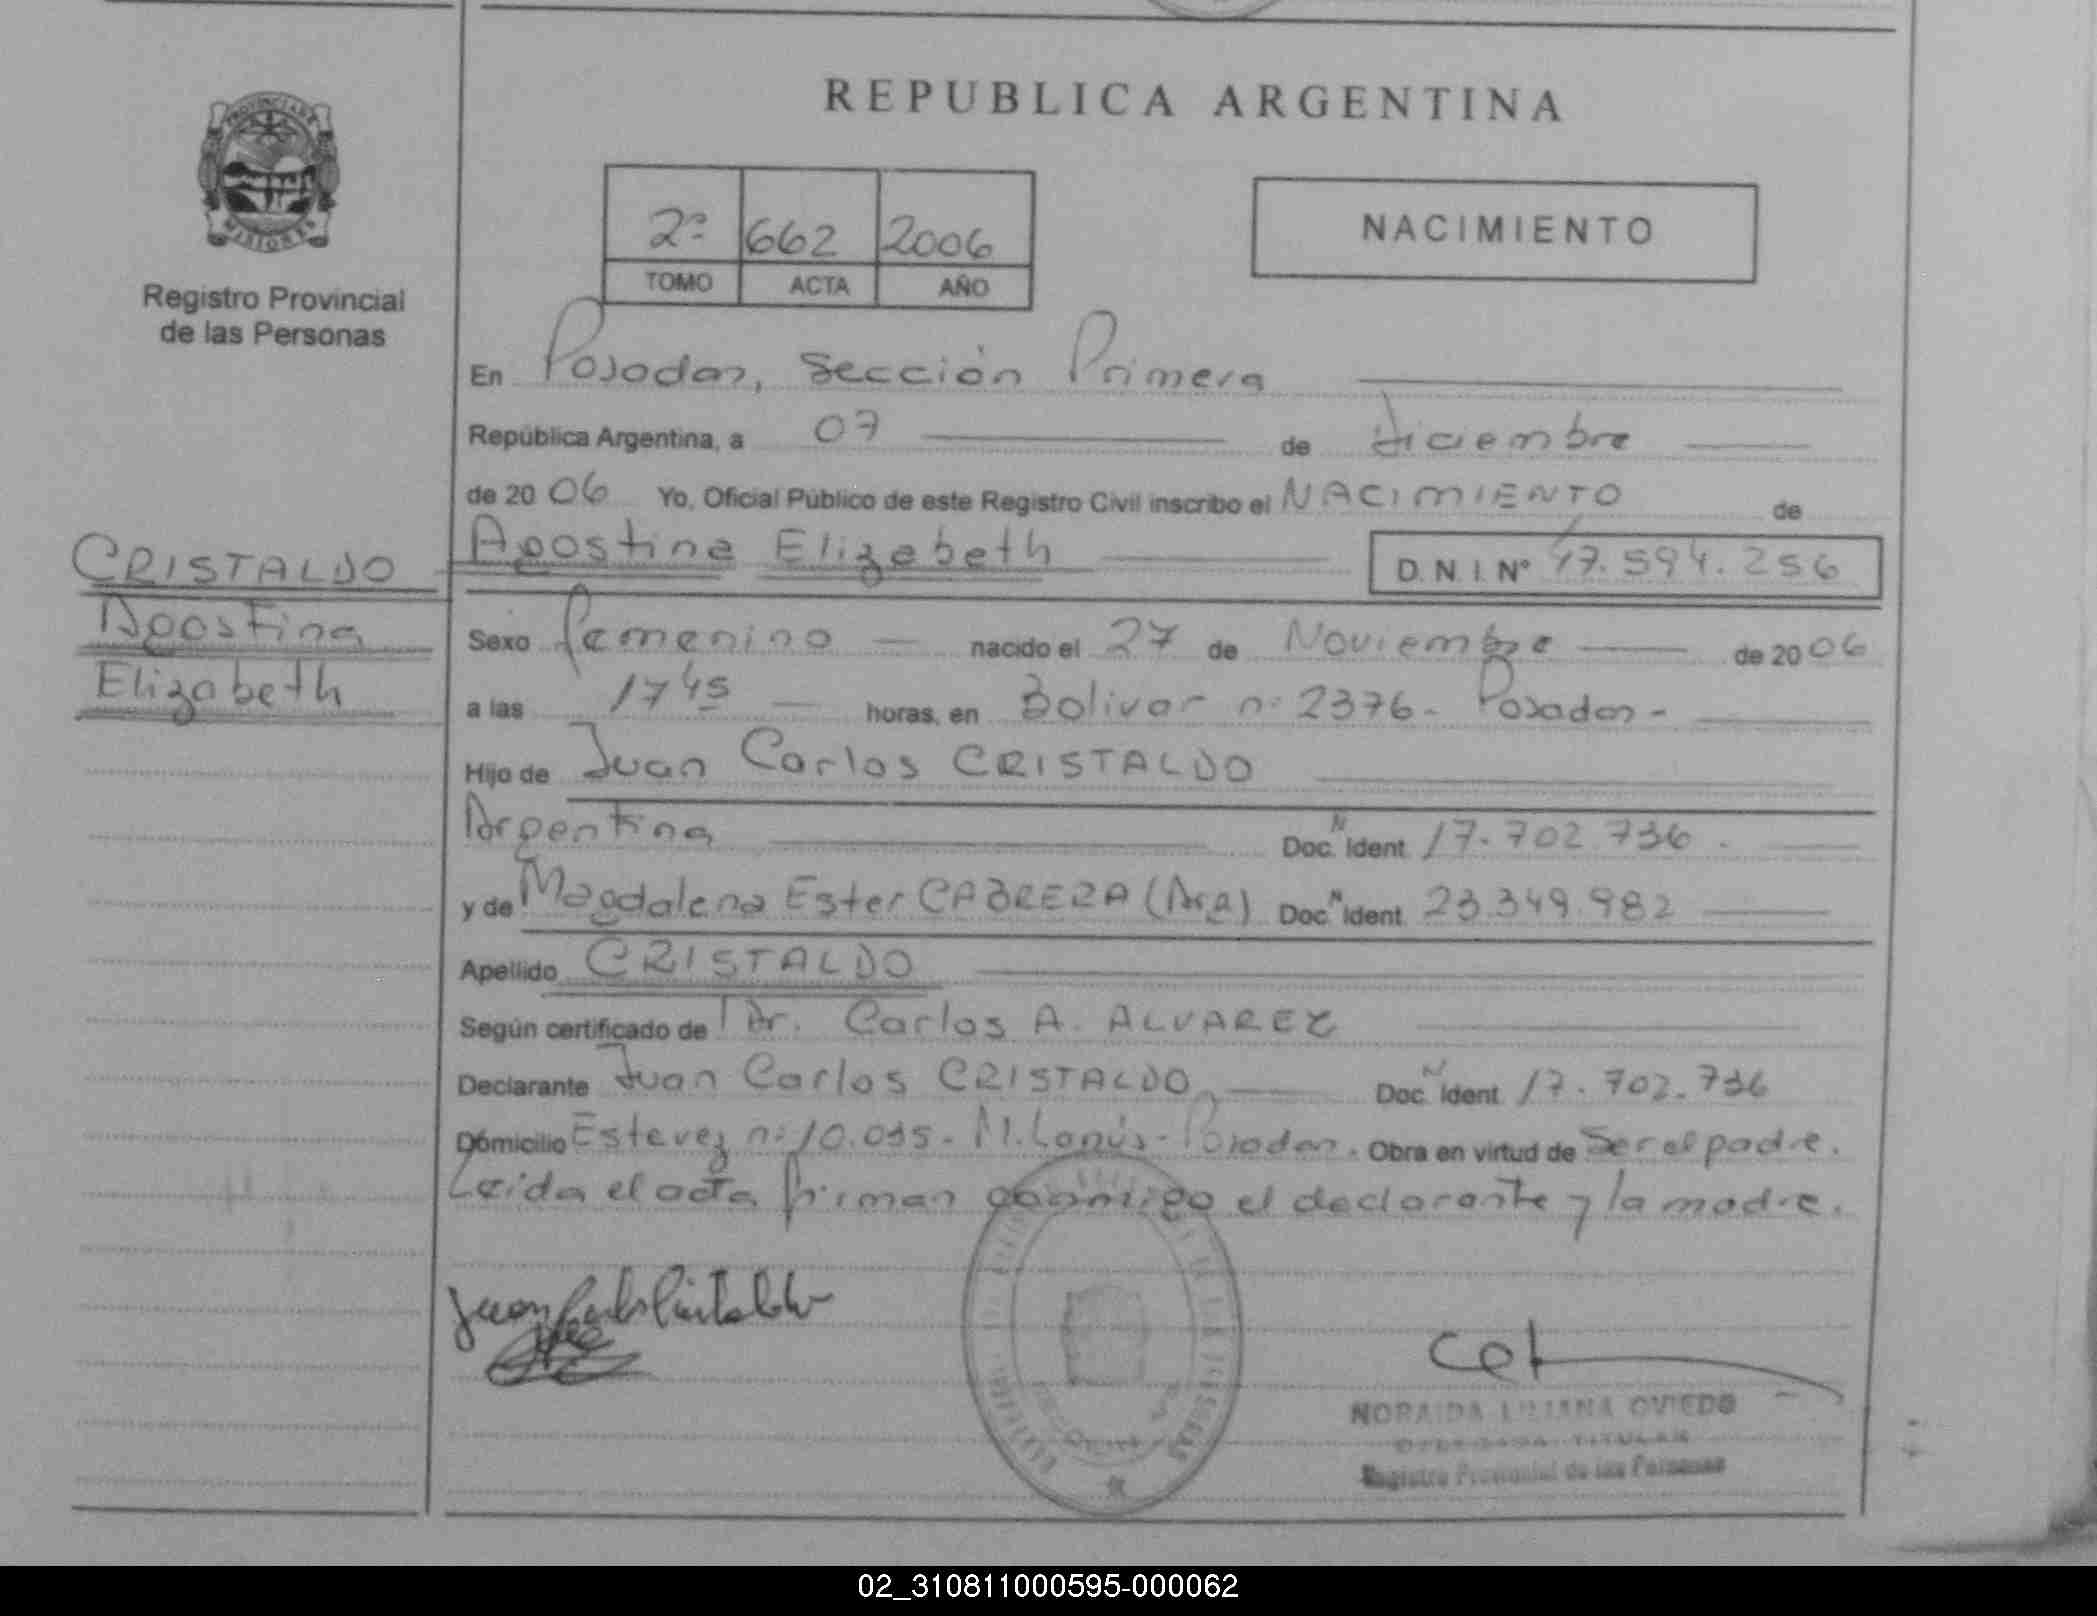 REPUBLICA ARGENTINA
PROVINCIA DE
MISIONES
Registro Provincial
de las Personas
2º 662 2006
TOMO ACTA AÑO
NACIMIENTO
En Posadas, Sección Primera
República Argentina, a 07 de diciembre
de 2006 Yo, Oficial Público de este Registro Civil inscribo el NACIMIENTO de
CRISTALDO Agostina Elizabeth D.N.I. Nº 47.594.256
Agostina
Elizabeth
Sexo femenino nacido el 27 de Noviembre de 2006
a las 17 45 horas, en Bolivar nº 2376- Posadas-
Hijo de Juan Carlos CRISTALDO
Argentina Doc. N Ident. 17.702.736.
y de Magdalena Ester CABRERA (Arg) Doc. N Ident. 23.349.982
Apellido CRISTALDO
Según certificado de Dr. Carlos A. ALVAREZ
Declarante Juan Carlos CRISTALDO Doc. N Ident. 17.702.736
Domicilio Estevez nº 10.035- M. Lanús- Posadas. Obra en virtud de Ser el padre.
Leida el acta firman conmigo el declarante y la madre.
Juan Carlos Cristaldo
NORAIDA LILIANA OVIEDO
DELEGADA TITULAR
Registro Provincial de las Personas
02_310811000595-000062